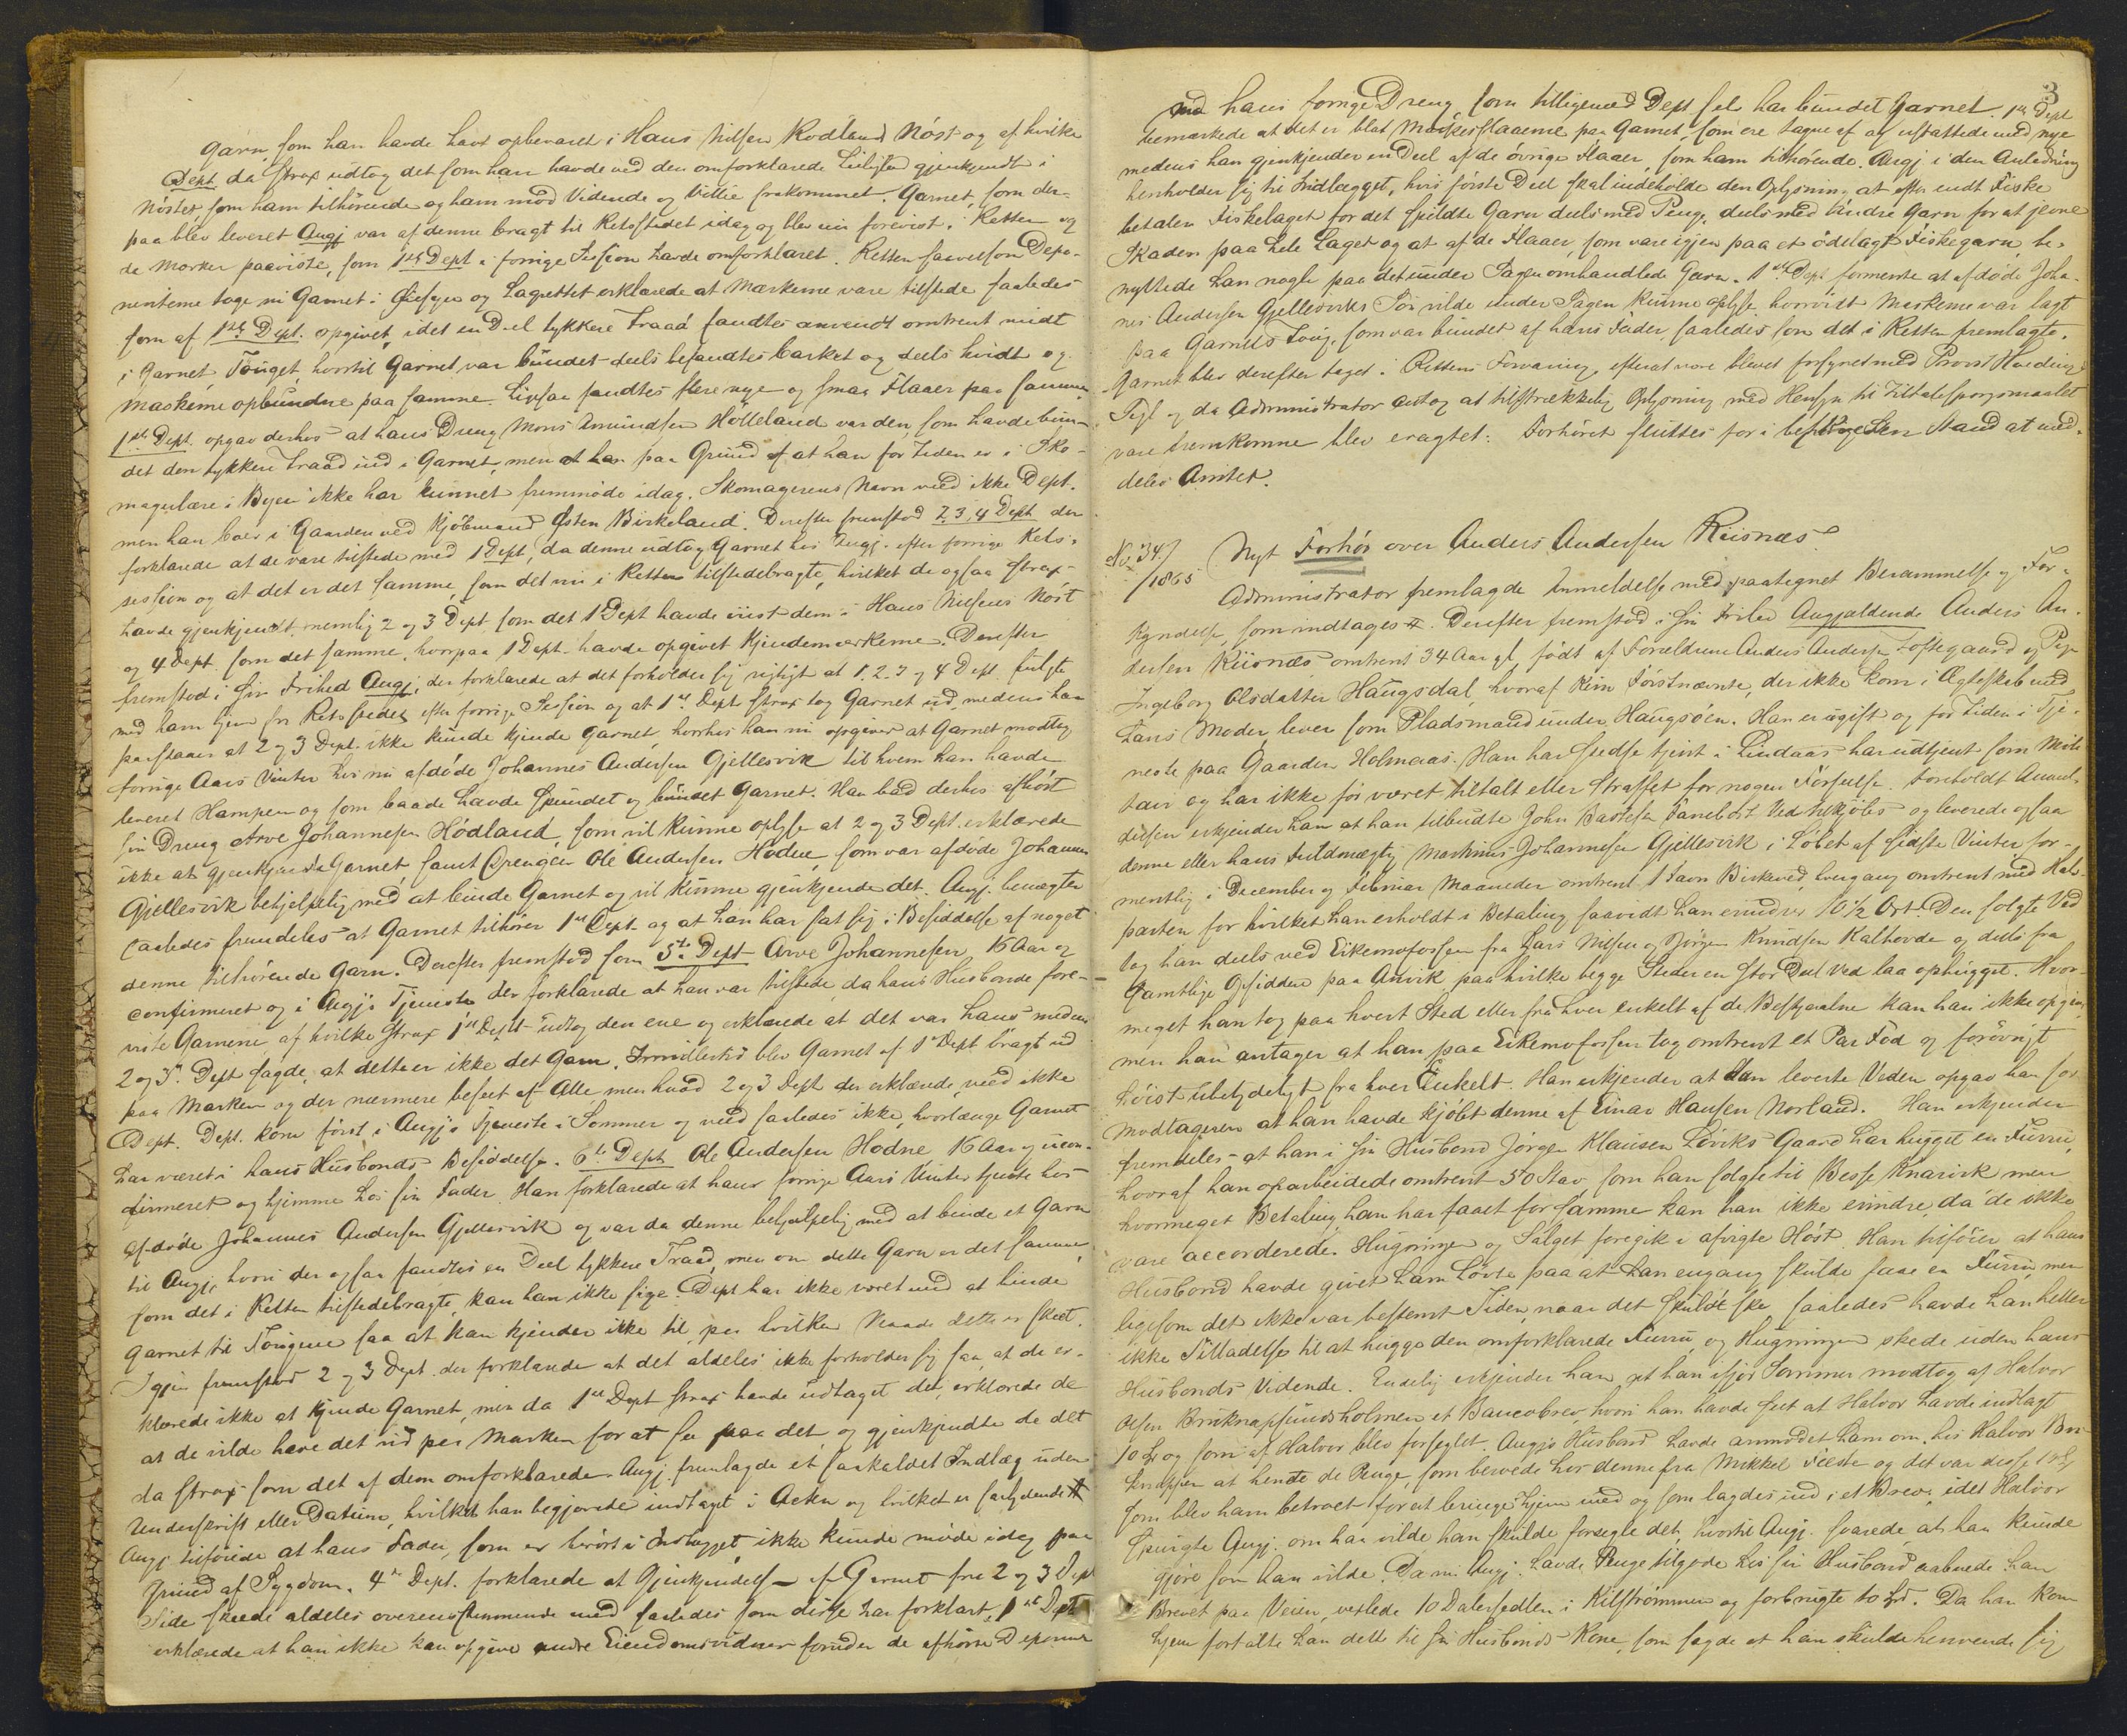 Garn, som han havde havt opbevaret i Hans Nilsen Rødland Nøst og af hvilke
Dept. da strax udtog det som han havde ved den omforklarede Leilighed gjenkjendt i
Nøstet, som ham tilhørende og ham mod Vidende og Villie frakommet. Garnet, som der-
paa blev leveret Angj. var af denne bragt til Retsstedet idag og blev nu forevist i Retten og
de Mærker paaviste, som 1ste Dept. i forrige Session havde omforklaret. Retten saavelsom Depo-
nenterne toge nu Garnet i Øiesyn og Lagrettet erklærede at Mærkerne vare tilstede saaledes
som af 1ste Dept. opgivet, idet en Deel tykkere Traad fandtes anvendt omtrent midt
i Garnet, Touget, hvortil Garnet var bundet deels befandtes barket og deels hvidt og
Maskerne opbundne paa samme. Ligesaa fandtes flere nye og smaa Flaaer paa samme.
1ste Dept. opgav derhos at hans Dreng Mons Amundsen Hølleland var den, som havde bun-
det den tykkere Traad ind i Garnet, men at han paa Grund af at han for Tiden er i Sko-
magerlære i Byen ikke har kunnet fremmøde idag. Skomagerens Navn veed ikke Dept.
men han boer i Gaarden ved Kjøbmand Østen Birkeland. Derefter fremstod 2, 3, 4 Dept. der
forklarede at de vare tilstede med 1 Dept, da denne udtog Garnet hos Angj. efter forrige Rets-
session og at det er det samme, som det nu i Retten tilstedebragte, hvilket de ogsaa strax
havde gjenkjendt, nemlig 2 og 3 Dept som det 1 Dept havde viist dem i Hans Nilsens Nøst
og 4 Dept. som det samme, hvorpaa 1 Dept. havde opgivet Kjendemærkerne. Derefter
fremstod i sin Frihed Angj. der forklarede at det forholder sig rigtigt at 1, 2, 3 og 4 Dept. fulgte
med ham hjem fra Retsstedet efter forrige Session og at 1ste Dept strax tog Garnet ud, medens han
paastaaer at 2 og 3 Dept. ikke kunde kjende Garnet, hvorhos han nu opgiver at Garnet modtog
forrige Aars Vinter hos nu afdøde Johannes Andersen Gjellesvik til hvem han havde
leveret Hampen og som baade havde spundet og bundet Garnet. Han bad derhos afhørt
sin Dreng Arve Johannesen Hødland, som vil kunne oplyse at 2 og 3 Dept. erklærede
ikke at gjenkjende Garnet, samt Drengen Ole Andersen Hodne, som var afdøde Johannes
Gjellesvik behjelpelig med at binde Garnet og vil kunne gjenkjende det. Angj. benægter
saaledes fremdeles at Garnet tilhører 1ste Dept. og at han har sat sig i Besiddelse af noget
denne tilhørende Garn. Derefter fremstod som 5te Dept Arve Johannesen 16 Aar og
confirmeret og i Angjs Tjeneste der forklarede at han var tilstede, da hans Husbonde fore-
viste Garnene af hvilke strax 1ste Dept udtog den ene og erklærede at det var hans medens
2 og 3die Dept sagde, at dette er ikke det Garn. Imidlertid blev Garnet af 1ste Dept bragt ud
paa Marken og der nærmere beseet af Alle, men hvad 2 og 3 Dept der erklærede, veed ikke
Dept. Dept. kom først i Angjs Tjeneste i Sommer og veed saaledes ikke, hvorlænge Garnet
har været i hans Husbonds Besiddelse. 6te Dept Ole Andersen Hodne 16 Aar og ucon-
firmeret og hjemme hos sin Fader. Han forklarede at han forrige Aars Vinter tjente hos
afdøde Johannes Andersen Gjellesvik og var da denne behjælpelig med at binde et Garn
til Angj. hvori der ogsaa fandtes en Deel tykkere Traad, men om dette Garn er det samme
som det i Retten tilstedebragte, kan han ikke sige. Dept har ikke været med at binde
Garnet til Tougene saa at han kjender ikke til paa hvilken Maade dette er skeet.
Igjen fremstod 2 og 3 Dept. der forklarede at det aldeles ikke forholder sig saa, at de er-
klærede ikke at kjende Garnet, men da 1ste Dept strax havde udtaget det, erklærede de
at de vilde have det ud paa Marken for at see paa det og gjenkjendte de det
da strax som det af dem omforklarede. Angj. fremlagde et saakaldet Indlæg uden
Underskrift eller Datum, hvilket han begjærede indtaget i Acten og hvilket er saalydende #
Angj. tilføiede at hans Fader, som er berørt i Indlægget, ikke kunde møde idag paa
Grund af Sygdom. 4de Dept. forklarede at Gjenkjendelsen af Garnet fra 2 og 3 Dept
Side skeede aldeles overensstemmende med saaledes som disse har forklaret. 1ste Dept
erklærede at han ikke kan opgive andre Eiendomsvidner foruden de afhørte Deponenter
3
end hans forrige Dreng, som tilligemed Dept selv har bundet Garnet. 1ste Dept
bemærkede at det er blot Mærkesflaaerne paa Garnet, som ere tagne af og erstattede med nye
medens han gjenkjender en Deel af de øvrige Flaaer, som ham tilhørende. Angj. i den Anledning
henholder sig til Indlægget, hvis første Deel skal indeholde den Oplysning at efter endt Fiske
betaler Fiskelaget for det spildte Garn deels med Penge, deels med andre Garn for at jevne
Skaden paa hele Laget og at af de Flaaer, som vare igjen paa et ødelagt Fiskegarn, be-
nyttede han nogle paa det under Sagen omhandlede Garn. 1ste Dept formente at afdøde Joha-
nes Andersen Gjellesviks Søn vilde under Sagen kunne oplyse, hvorvidt Mærkerne var lagt
paa Garnets Toug, som var bundet af hans Fader, saaledes som det i Retten fremlagte.
Garnet blev derefter taget i Rettens Forvaring, efterat være blevet forsynet med Provst Hardings
Segl og da Administrator antog at tilstrækkelig Oplysning med Hensyn til Tiltalespørgsmaalet
vare fremkomne blev eragtet: Forhøret sluttes for i beskreven Stand at med-
deles Amtet.
No 34
/1865
Nyt Forhør over Anders Andersen Riisnæs
Administrator fremlagde Anmeldelse med paategnet Berammelse og For-
kyndelse, som indtages #. Derefter fremstod i sin Frihed Angjældende Anders An-
dersen Riisnæs omtrent 34 Aar gl, født af Forældrene Anders Andersen Toftegaard og Pige
Ingeborg Olsdatter Haugsdal, hvoraf kun Førstnævnte, der ikke kom i Ægteskab med
hans Moder, lever som Pladsmand under Haugsøen. Han er ugift og for Tiden i Tje-
neste paa Gaarden Holmaas. Han har stedse tjent i Lindaas har udtjent som Mili-
tair og har ikke før været tiltalt eller straffet for nogen Forseelse. Foreholdt Anmel-
delsen erkjender han at han tilbudte John Bastesen Fanebost Ved tilkjøbs og leverede ogsaa
denne eller hans Fuldmægtig Martinus Johannesen Gjellesvik i Løbet af sidste Vinter for-
mentlig i December og Februar Maaneder omtrent 1 Favn Birkeved, hvergang omtrent med Halv-
parten for hvilket han erholdt i Betaling saavidt han erindrer 10 1/2 Ort. Den solgte Ved
tog han deels ved Eikemofossen fra Lars Nilsen og Jørgen Knudsen Kalhovde og deels fra
samtlige Opsiddere paa Anvik paa hvilke begge Steder en stor Deel Ved laa ophugget. Hvor-
meget han tog paa hvert Sted eller fra hver enkelt af de Bestjaalne kan han ikke opgive
men han antager at han paa Eikemofossen tog omtrent et Par Fod og forøvrigt
høist ubetydeligt fra hver Enkelt. Han erkjender at da han leverte Veden opgav han for
Modtageren at han havde kjøbt denne af Einar Hansen Norland. Han erkjender
fremdeles at han i sin Husbond Jørgen Klausen Løviks Gaard har hugget en Furru,
hvoraf han oparbeidede omtrent 50 Stav som han solgte til Besse Knarvik men
hvormeget Betaling han har faaet for samme kan han ikke erindre, da de ikke
vare accorderede. Hugningen og Salget foregik i afvigte Høst. Han tilføier at hans
Husbond havde givet ham Løvte paa at han engang skulde faae en Furru, men
ligesom det ikke var bestemt Tiden, naar det skulde ske, saaledes havde han heller
ikke Tilladelse til at hugge den omforklarede Furru og Hugningen skede uden hans
Husbonds Vidende. Endelig erkjender han at han ifjor Sommer modtog af Halvor
Olsen Bruknapsundsholmen et Bancobrev, hvori han havde seet at Halvor havde indlagt
10 Spd og som af Halvor blev forseglet. Angjs Husbond havde anmodet ham om, hos Halvor Bru-
knappen at hente de Penge, som beroede hos denne fra Mikkel Feste og det var disse 10 Spd
som blev ham betroet for at bringe hjem med og som lagdes ind i et Brev, idet Halvor
spurgte Angj. om han vilde han skulde forsegle det, hvortil Angj. svarede, at han kunde
gjøre som han vilde. Da nu Angj. havde Penge tilgode hos sin Husbond aabnede han
Brevet paa Veien, vexlede 10 Dalersedlen i Kilstrømmen og forbrugte to Spd. Da han kom
hjem fortalte han dette til sin Husbonds Kone, som sagde at han skulde henvende sig